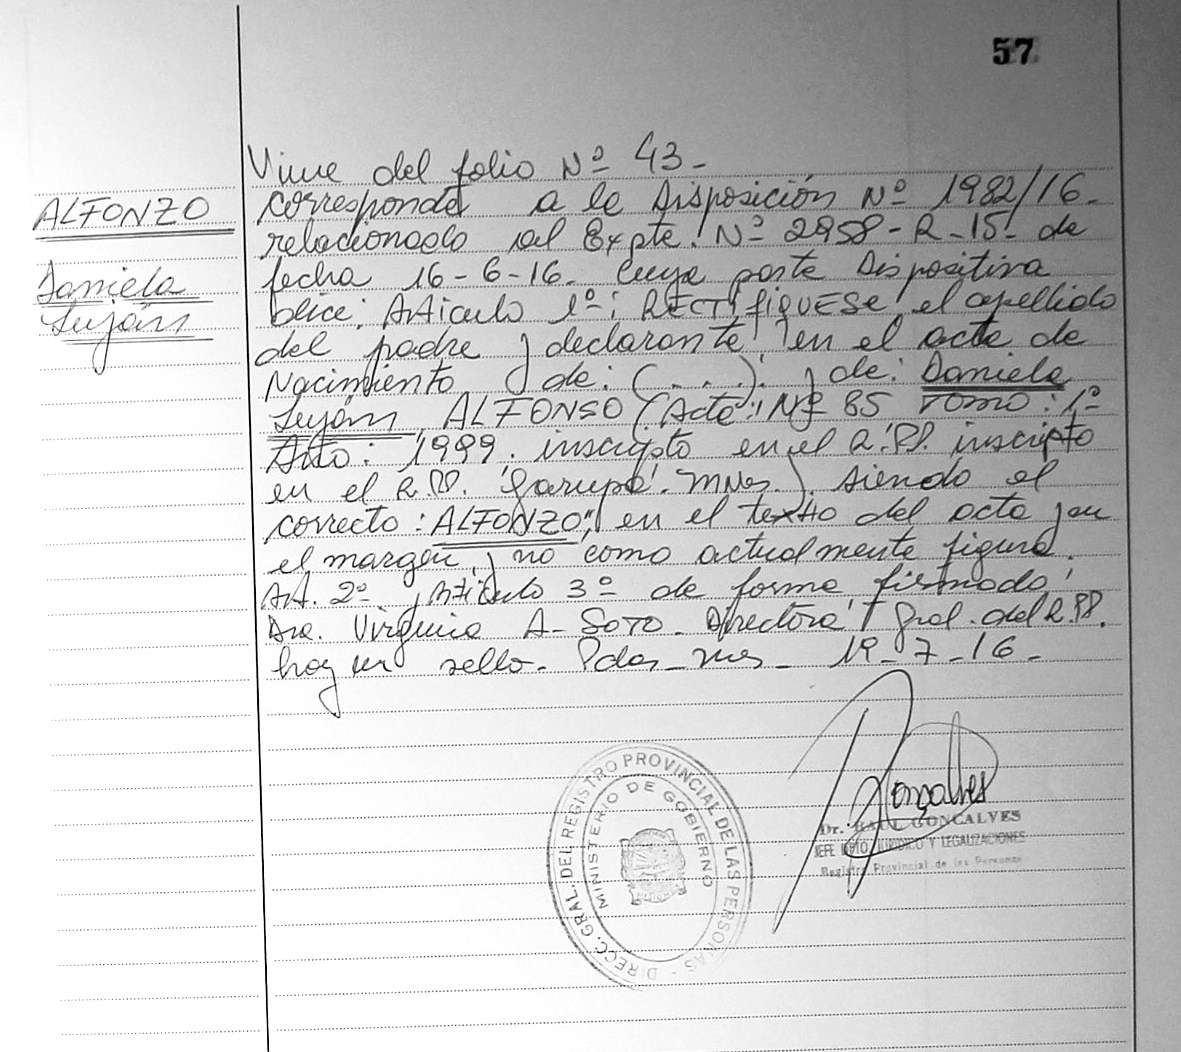 57
Viene del folio Nº 43-
ALFONZO
Daniela
Luján
Corresponde a la Disposición Nº 1982/16-
relacionado al Expte. Nº 2958-R-15- de
fecha 16-6-16. Cuya parte Dispositiva
dice: Artículo 1º: RECTIFIQUESE el apellido
del padre y declarante en el acta de
Nacimiento de: (...). y de: Daniela
Luján ALFONSO (Acta: Nº 85 Tomo: 1º
Año: 1999. inscripto en el R.PP. inscripto
en el R.PP. Garupá. Mnes.). siendo el
correcto: ALFONZO", en el texto del acta y en
el margen, y no como actualmente figura.
Art. 2º y Artículo 3º de forma firmado:
Dra. Virginia A- Soto- Directora Gral. del R.PP.
hay un sello- Pdas-Mnes- 19-7-16-
Gonçalves
Dr. RAUL GONCALVES
JEFE DPTO. JURIDICO Y LEGALIZACIONES
Registro Provincial de las Personas
DIRECC. GRAL. DEL REGISTRO PROVINCIAL DE LAS PERSONAS -
MINISTERIO DE GOBIERNO